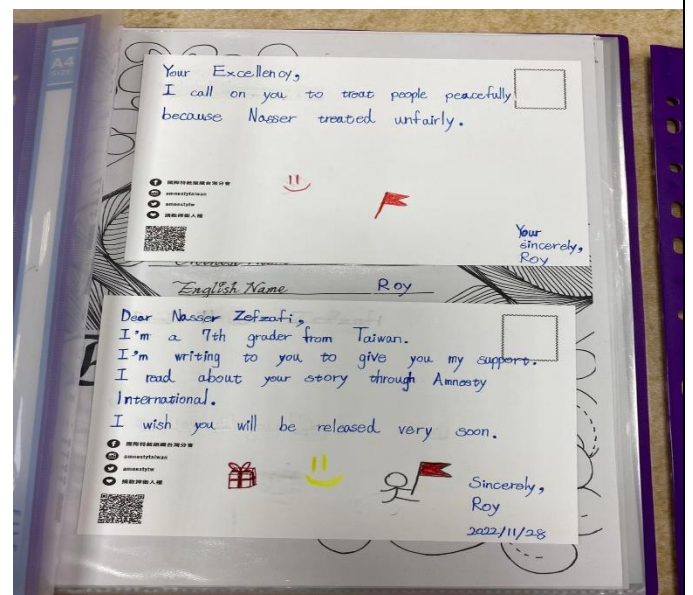 A4
SIZE
Your Excellency,
I call on you to treat people peacefully
because Nasser treated unfairly.
國際特赦組織台灣分會
amnestytaiwan
amnestytw
捐款捍衛人權
Your
sincerely,
Roy
English Name Roy
Dear Nasser Zefzafi,
I'm a 7th grader from Taiwan.
I'm writing to you to give you my support.
I read about your story through Amnesty
International.
I wish you will be released very soon.
國際特赦組織台灣分會
amnestytaiwan
amnestytw
捐款捍衛人權
Sincerely,
Roy
2022/11/28